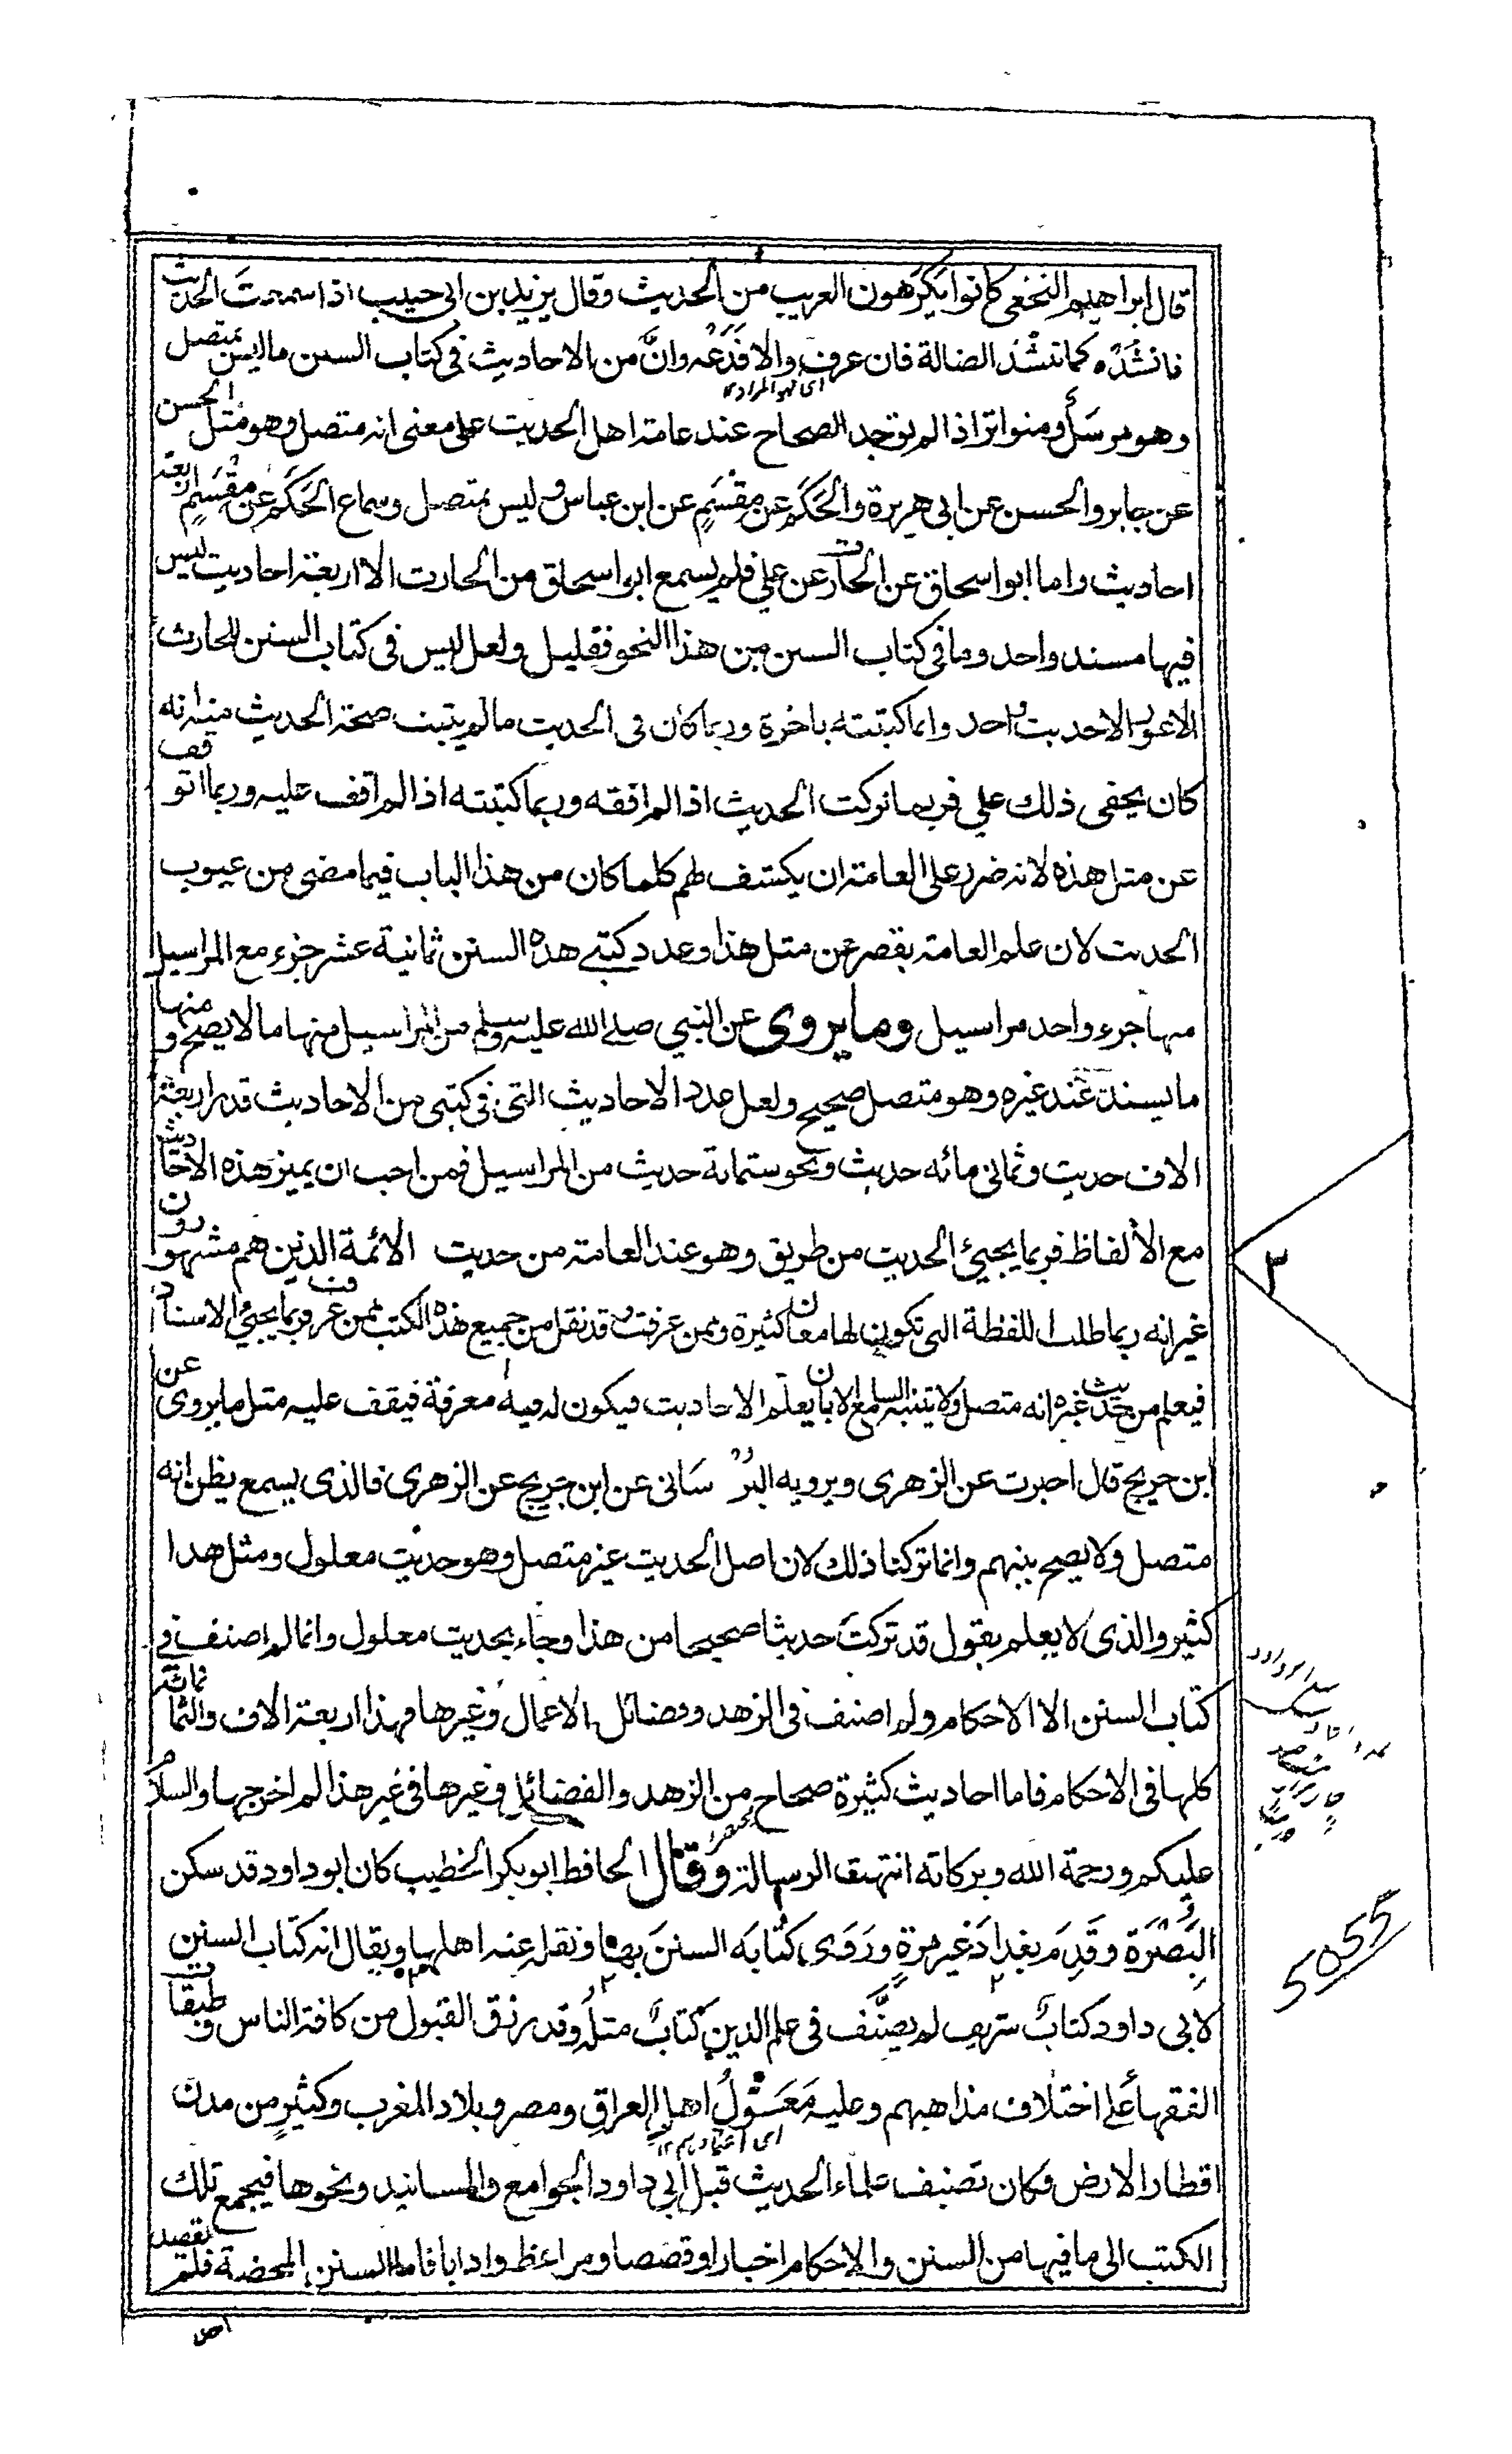 قال ابراهيم النخعي كانوا يكرهون الغريب من الحديث وقال يزيد بن ابي حبيب اذا سمعت الحديث
فانشده كما تنشد الضالة فان عرف والا فدعه وان من الاحاديث في كتاب السنن ما ليس بمتصل
وهو مرسل ومتواتر اذا لم توجد الصحاح عند عامة اهل الحديث على معنى انه متصل وهو مثل الحسن
عن جابر والحسن عن ابي هريرة والحكم عن مقسم عن ابن عباس وليس بمتصل وسماع الحكم عن مقسم اربعة
احاديث واما ابو اسحاق عن الحارث عن علي فلم يسمع ابو اسحاق من الحارث الا اربعة احاديث ليس
فيها مسند واحد وما في كتاب السنن من هذا النحو فقليل ولعل ليس في كتاب السنن للحارث
الاعور الا حديث واحد وانما كتبته باخرة وربما كان في الحديث ما لم يثبت صحة الحديث منه انه
كان يخفى ذلك علي فربما تركت الحديث اذا لم افقه وربما كتبته اذا لم اقف عليه وربما اتوقف
عن مثل هذه لانه ضرر على العامة ان يكشف لهم كلما كان من هذا الباب فيما مضى من عيوب
الحديث لان علم العامة يقصر عن مثل هذا وعدد كتبي هذه السنن ثمانية عشر جزء مع المراسيل
منها جزء واحد مراسيل وما يروى عن النبي صلى الله عليه وسلم من المراسيل منها ما لا يصح ومنها
ما يسند عند غيره وهو متصل صحيح ولعل عدد الاحاديث التي في كتبي من الاحاديث قدر اربعة
الاف حديث وثماني مائه حديث ونحو ستمائة حديث من المراسيل فمن احب ان يميز هذه الاحاديث
مع الالفاظ فربما يجيئ الحديث من طريق وهو عند العامة من حديث الائمة الذين هم مشهورون
غير انه ربما طلب اللفظة التي تكون لها معان كثيرة وممن عرفت وقد نقل من جميع هذه الكتب ممن عرفت وربما يجيئ الاسناد
فيعلم من حديث غيره انه متصل ولا يتنبه السامع الا بان يعلم الاحاديث فيكون له فيه معرفة فيقف عليه مثل ما يروى عن
ابن جريج قال اخبرت عن الزهري ويرويه البرساني عن ابن جريج عن الزهري فالذي يسمع يظن انه
متصل ولا يصح بينهم وانما تركنا ذلك لان اصل الحديث غير متصل وهو حديث معلول ومثل هذا
كثير والذي لا يعلم يقول قد تركت حديثا صحيحا من هذا وجاء بحديث معلول وانما لم اصنف في
كتاب السنن الا الاحكام ولم اصنف في الزهد وفضائل الاعمال وغيرها فهذا اربعة الاف والثمانمائة
كلها في الاحكام فاما احاديث كثيرة صحاح من الزهد والفضائل وغيرها في غير هذا لم اخرجها والسلام
عليكم ورحمة الله وبركاته انتهت الرسالة وقال الحافظ ابو بكر الخطيب كان ابو داود قد سكن
البصرة وقدم بغداد غير مرة وروى كتابه السنن بها ونقله عنه اهلها ويقال انه كتاب السنن
لابي داود كتاب شريف لم يصنف في علم الدين كتاب مثله وقد رزق القبول من كافة الناس وطبقات
الفقهاء على اختلاف مذاهبهم وعليه معول اهل العراق ومصر وبلاد المغرب وكثير من مدن
اقطار الارض فكان تصنيف علماء الحديث قبل ابي داود الجوامع والمسانيد ونحوها فيجمع تلك
الكتب الى ما فيها من السنن والاحكام اخبارا وقصصا ومواعظ وادابا فاما السنن المحضة فلم يقصد
٣
5055